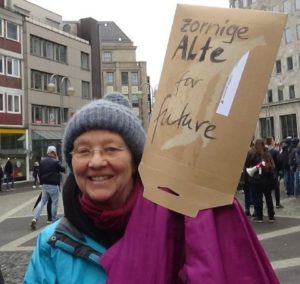 zornige
Alte
for
future